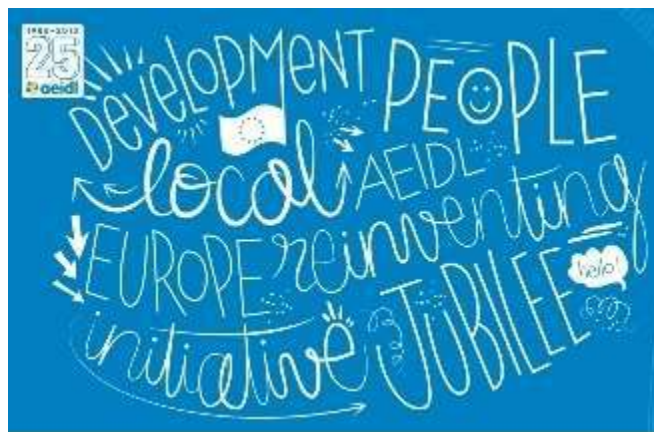 1988-2013
25
aeidl
DEVELOPMENT PEOPLE
local AEIDL
EUROPE reinventing
hello!
initiative JUBILEE